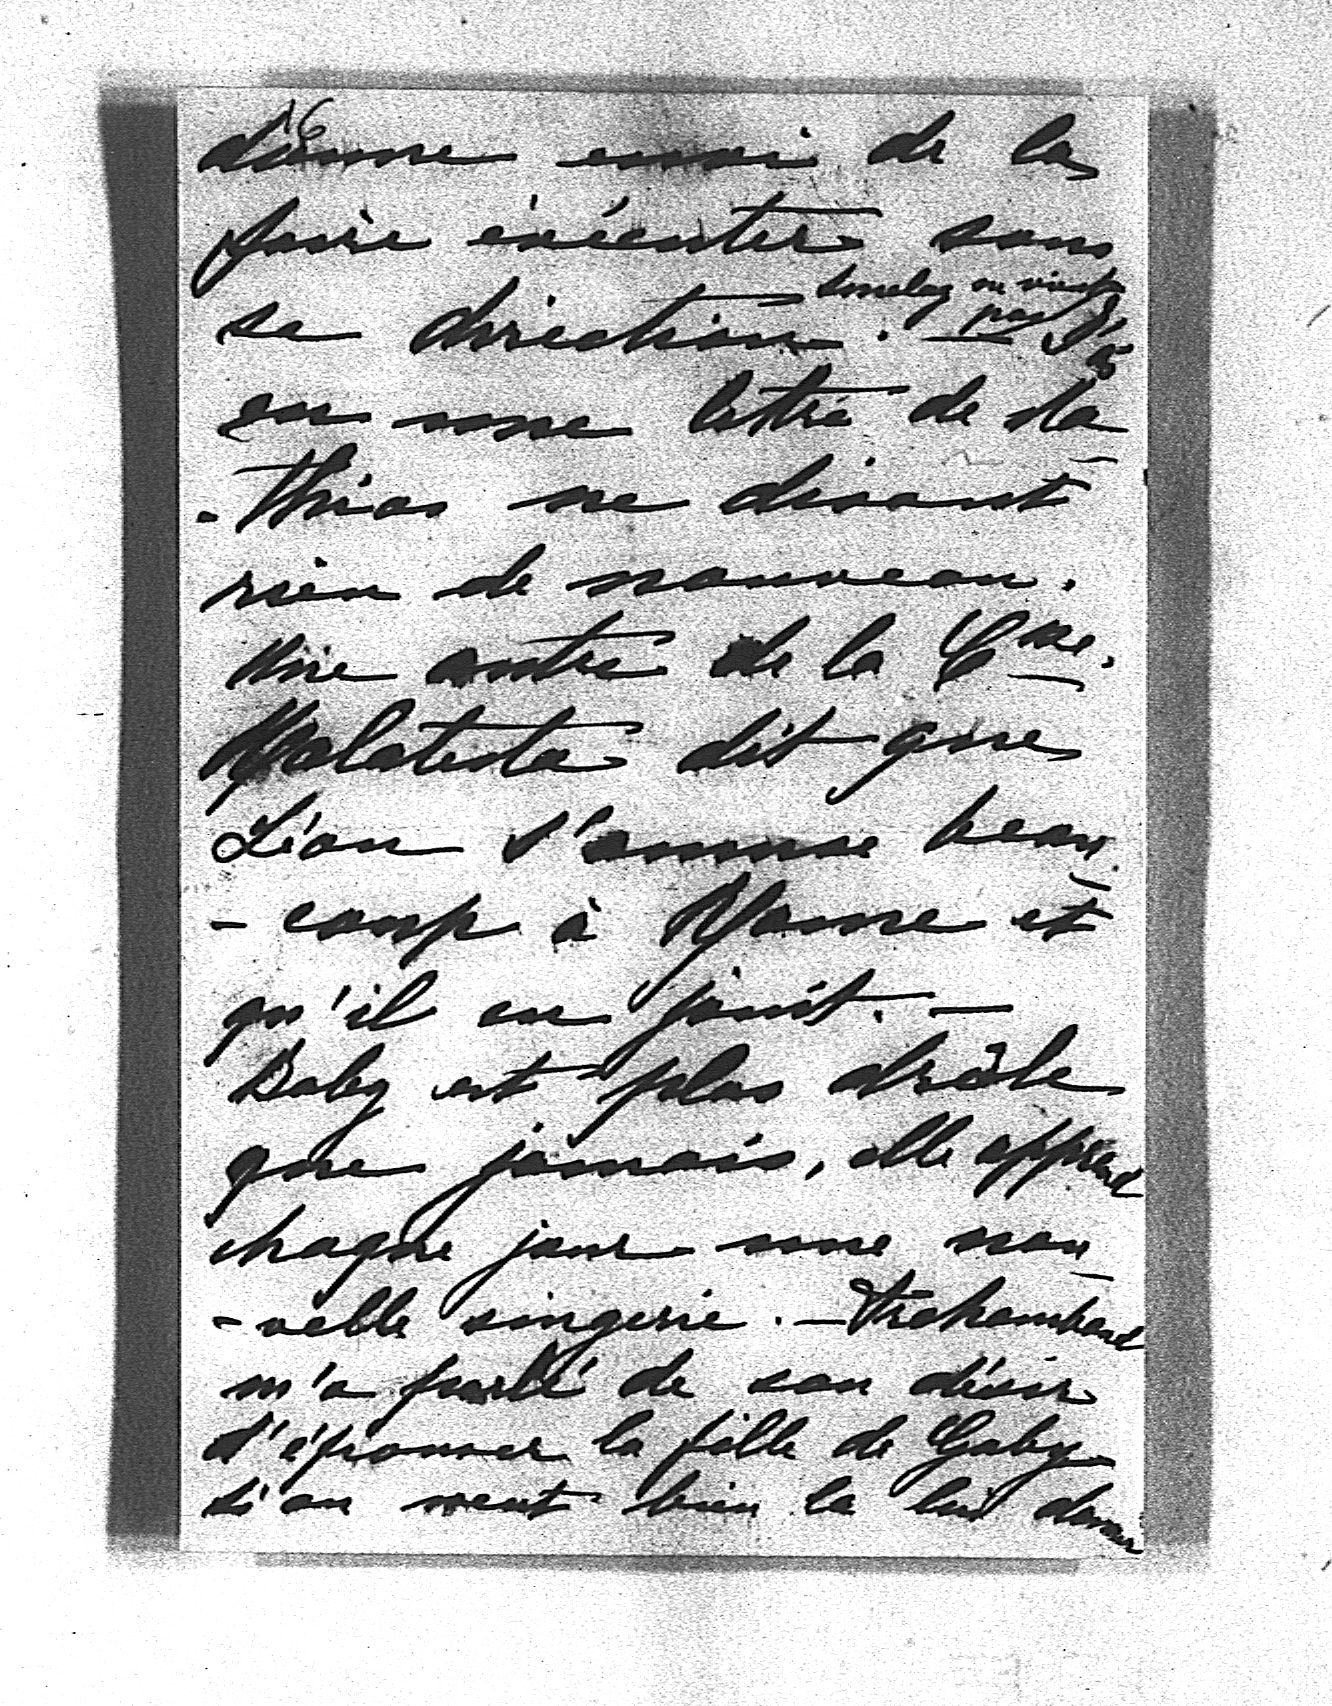 16
donne envoi de la
faire exécuter sans
sa direction. — J'ai
ne vient
pas
eu une lettre de Ma
-thias ne disant
rien de nouveau.
Une autre de la Ctesse.
Malatesta dit que
Léon s'amuse beau
-coup à Rome et
qu'il en jouit. —
Baby est plus drôle
que jamais, elle apprend
chaque jour une nou
-velle singerie. —
m'a parlé de son désir
d'épouser la fille de Gaby
si on veut bien la lui donner